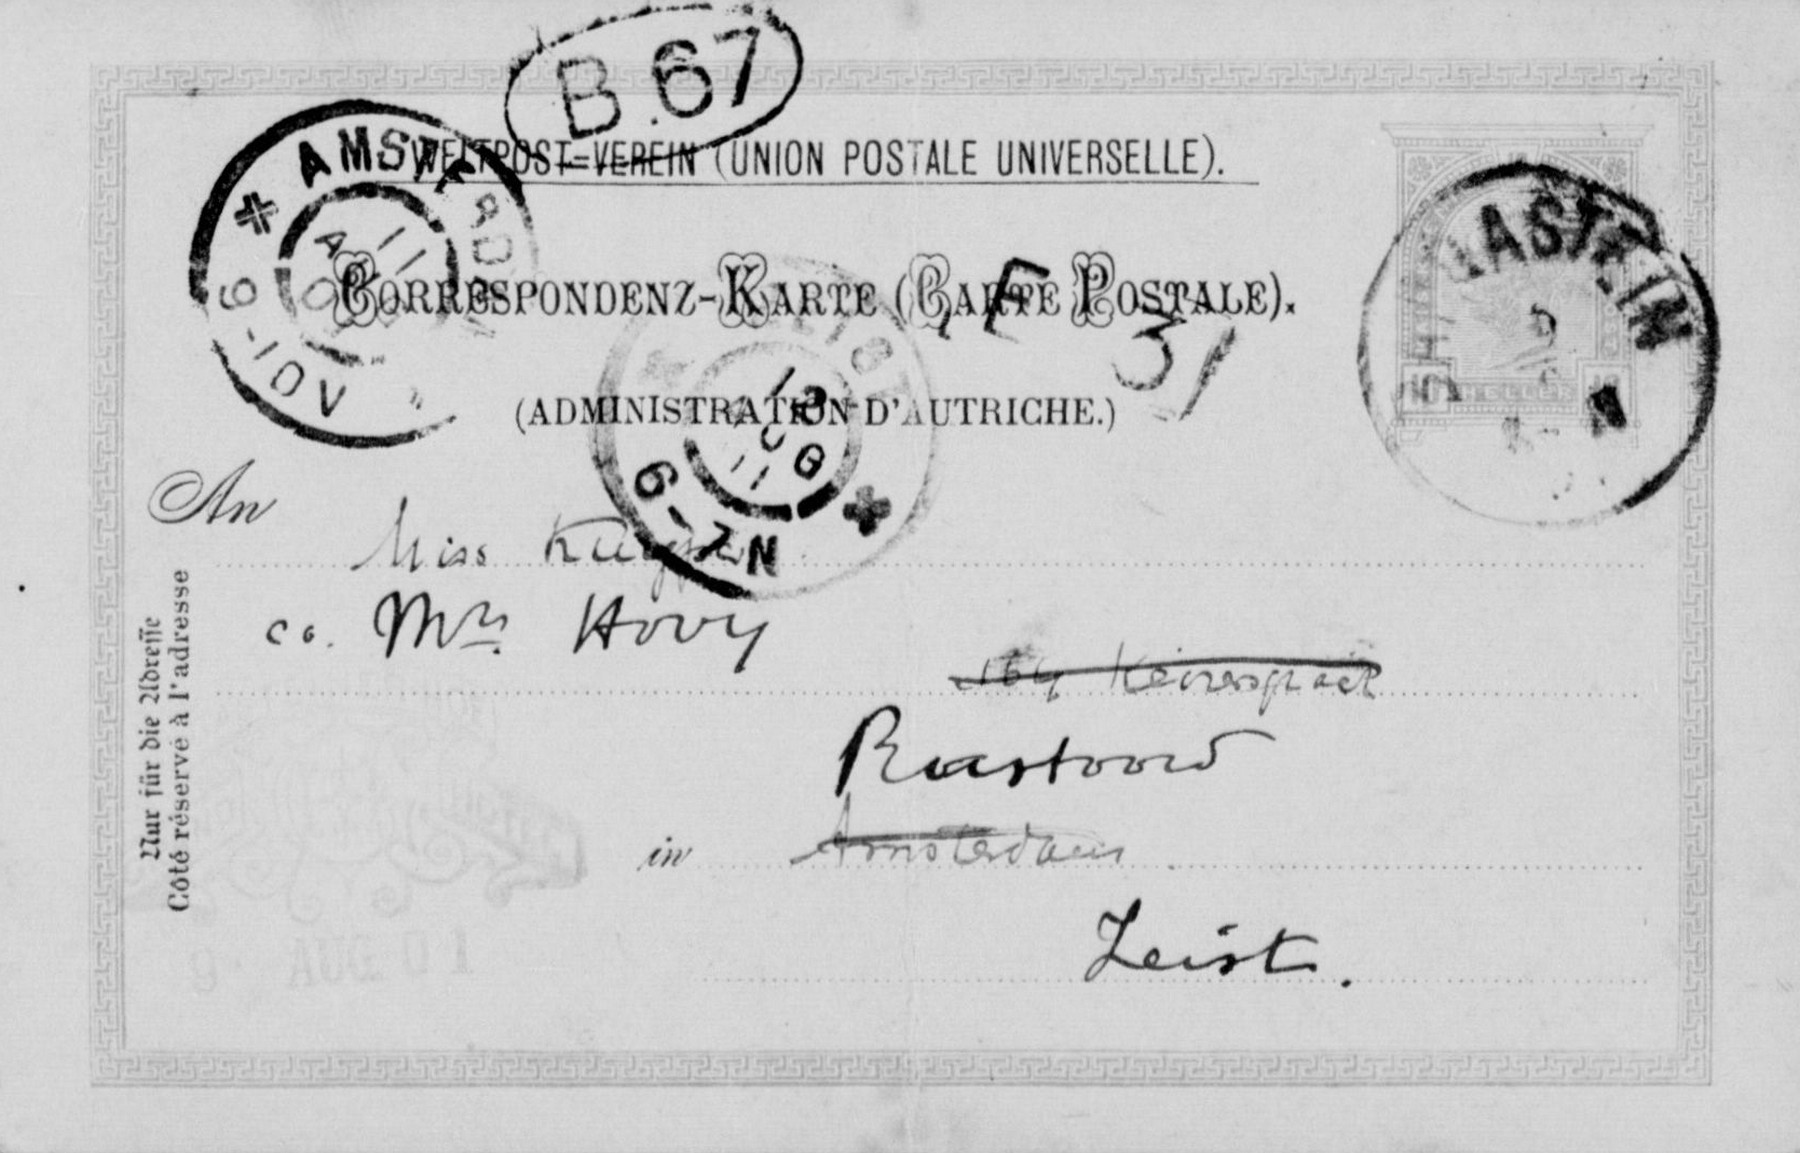 B.67
AMSTERDAM
11 AUG
9-10V
WELTPOST=VEREIN (UNION POSTALE UNIVERSELLE).
CORRESPONDENZ-KARTE (CARTE POSTALE).
(ADMINISTRATION D'AUTRICHE.)
GASTEIN
10 HELLER 10
31
6-7N
An
Miss Kuyper
co. Mrs Hovy
164 Keizersgracht
Rustoord
in Amsterdam
Zeist.
Nur für die Adresse
Côté réservé à l'adresse
9 AUG 01